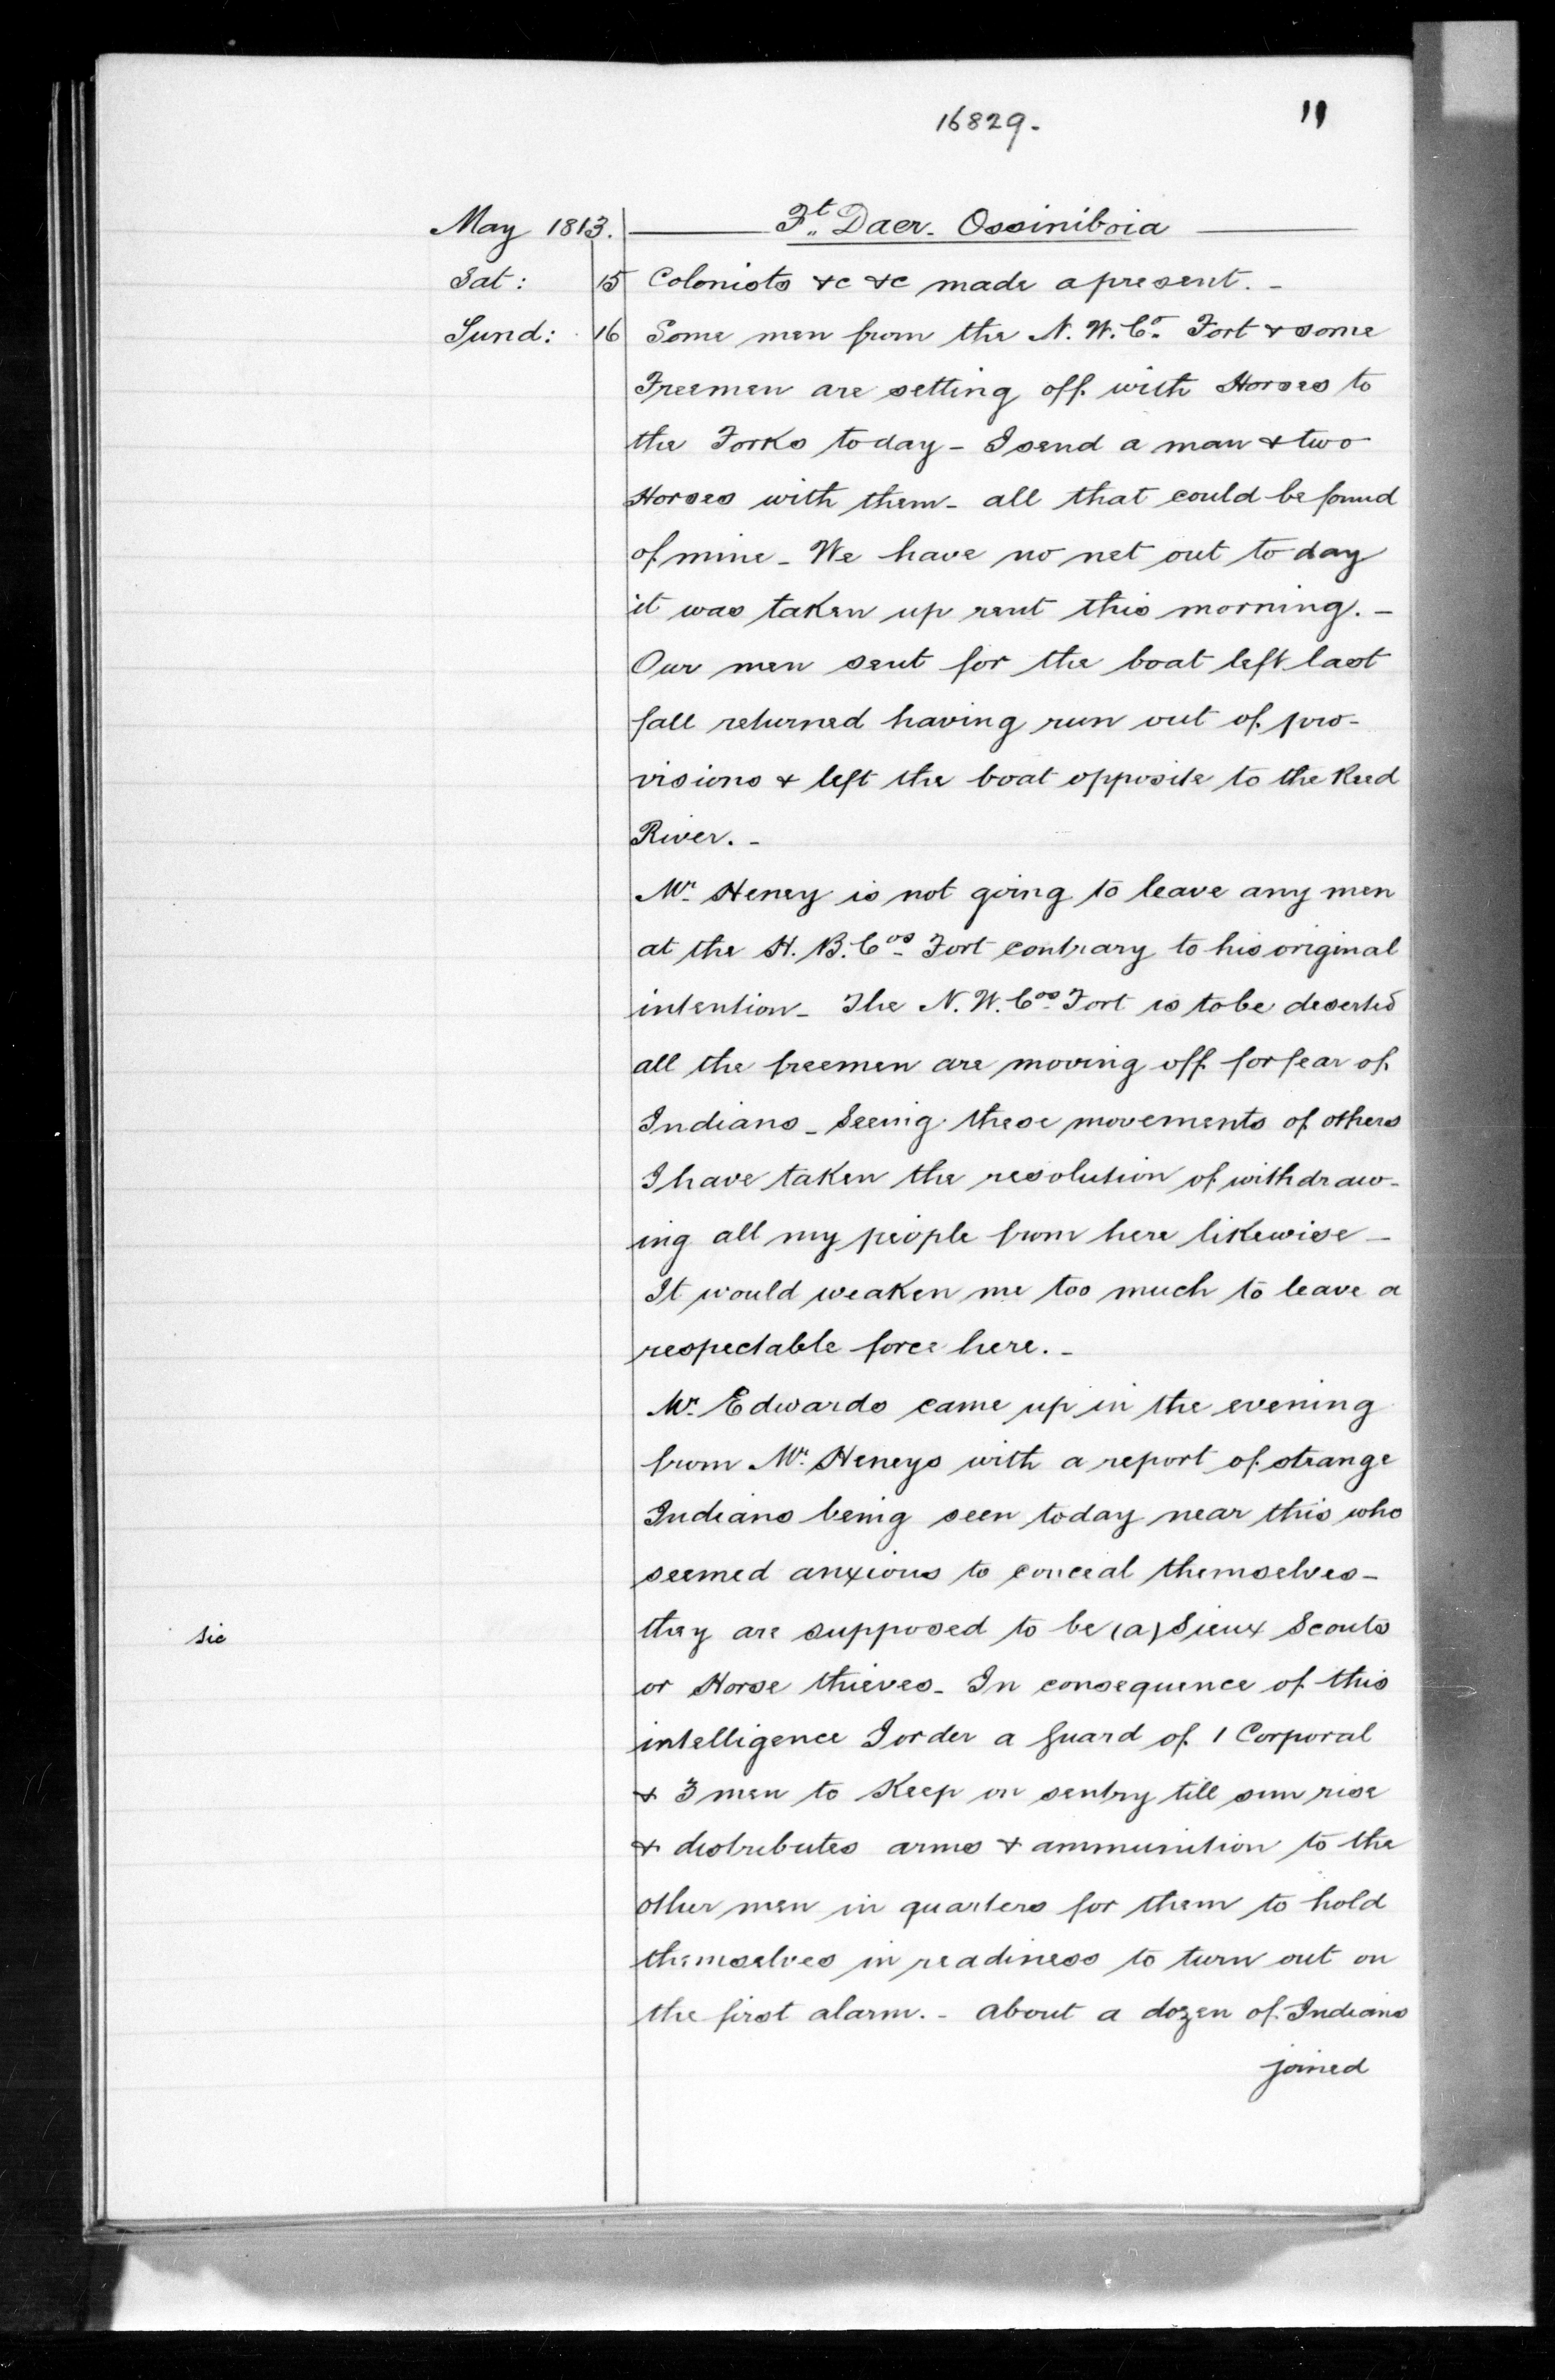 16829. 11
May 1813. Ft Daer. Ossiniboia
Sat: 15 Colonists &c &c made a present. -
Sund: 16 Some men from the N. W. Co. Fort & some
Freemen are setting off with Horses to
the Forks today - I send a man & two
Horses with them - all that could be found
of mine - We have no net out to day
it was taken up rent this morning. -
Our men sent for the boat left last
fall returned having run out of pro-
visions & left the boat opposite to the Reed
River. -
Mr. Heney is not going to leave any men
at the H. B. Cos. Fort contrary to his original
intention - The N. W. Cos. Fort is to be deserted
all the freemen are moving off for fear of
Indians - Seeing these movements of others
I have taken the resolution of withdraw-
ing all my people from here likewise -
It would weaken me too much to leave a
respectable force here. -
Mr. Edwards came up in the evening
from Mr. Heneys with a report of strange
Indians being seen today near this who
seemed anxious to conceal themselves -
sic they are supposed to be (a) Sieux Scouts
or Horse thieves - In consequence of this
intelligence I order a guard of 1 Corporal
& 3 men to Keep on sentry till sun rise
& distributes arms & ammunition to the
other men in quarters for them to hold
themselves in readiness to turn out on
the first alarm. - about a dozen of Indians
joined